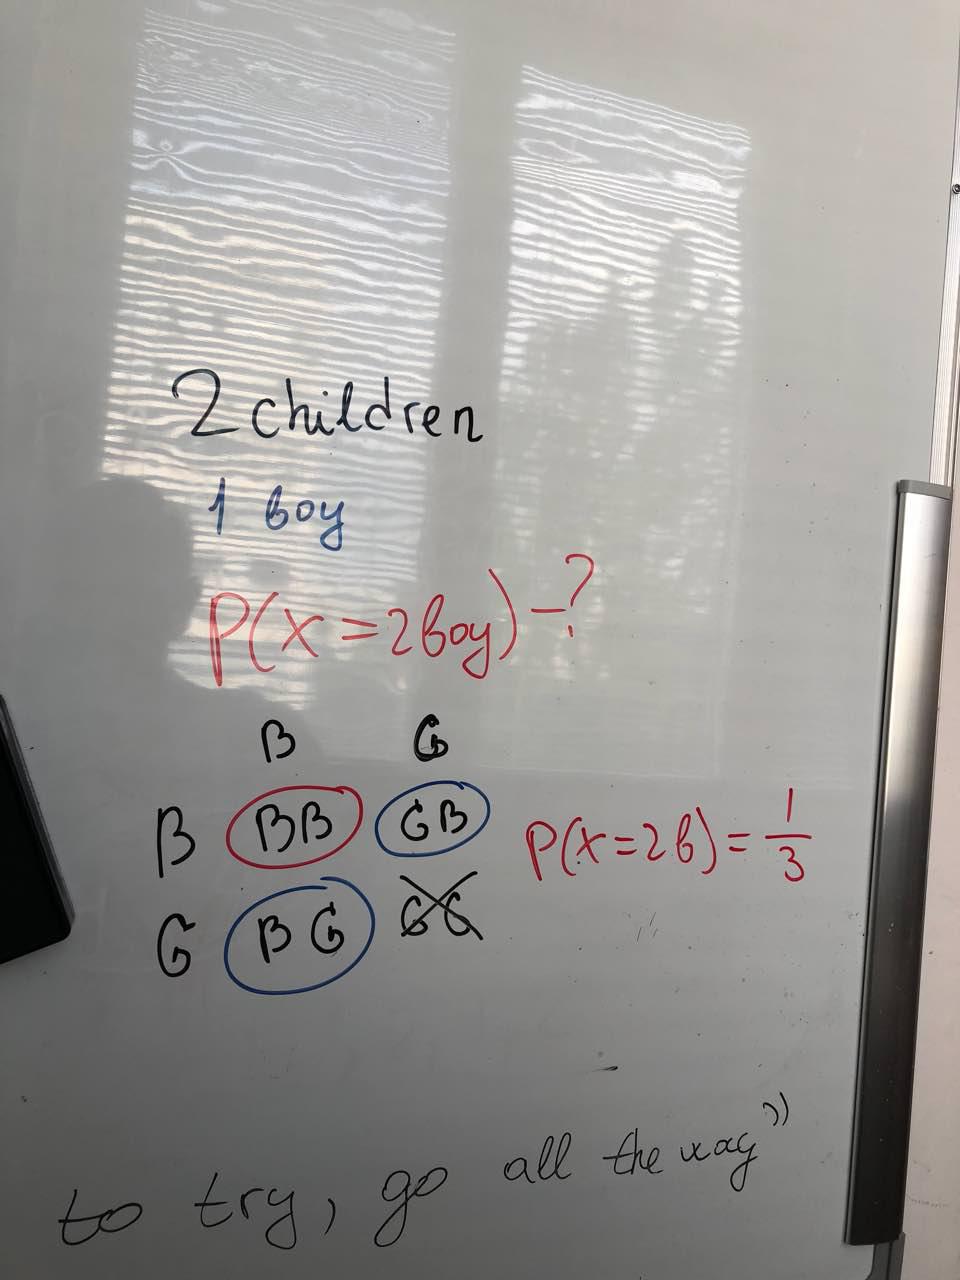 2 children
1 boy
P(x=2boy)-?
B G
B BB GB P(x=2b)=1/3
G BG GG
to try, go all the way"